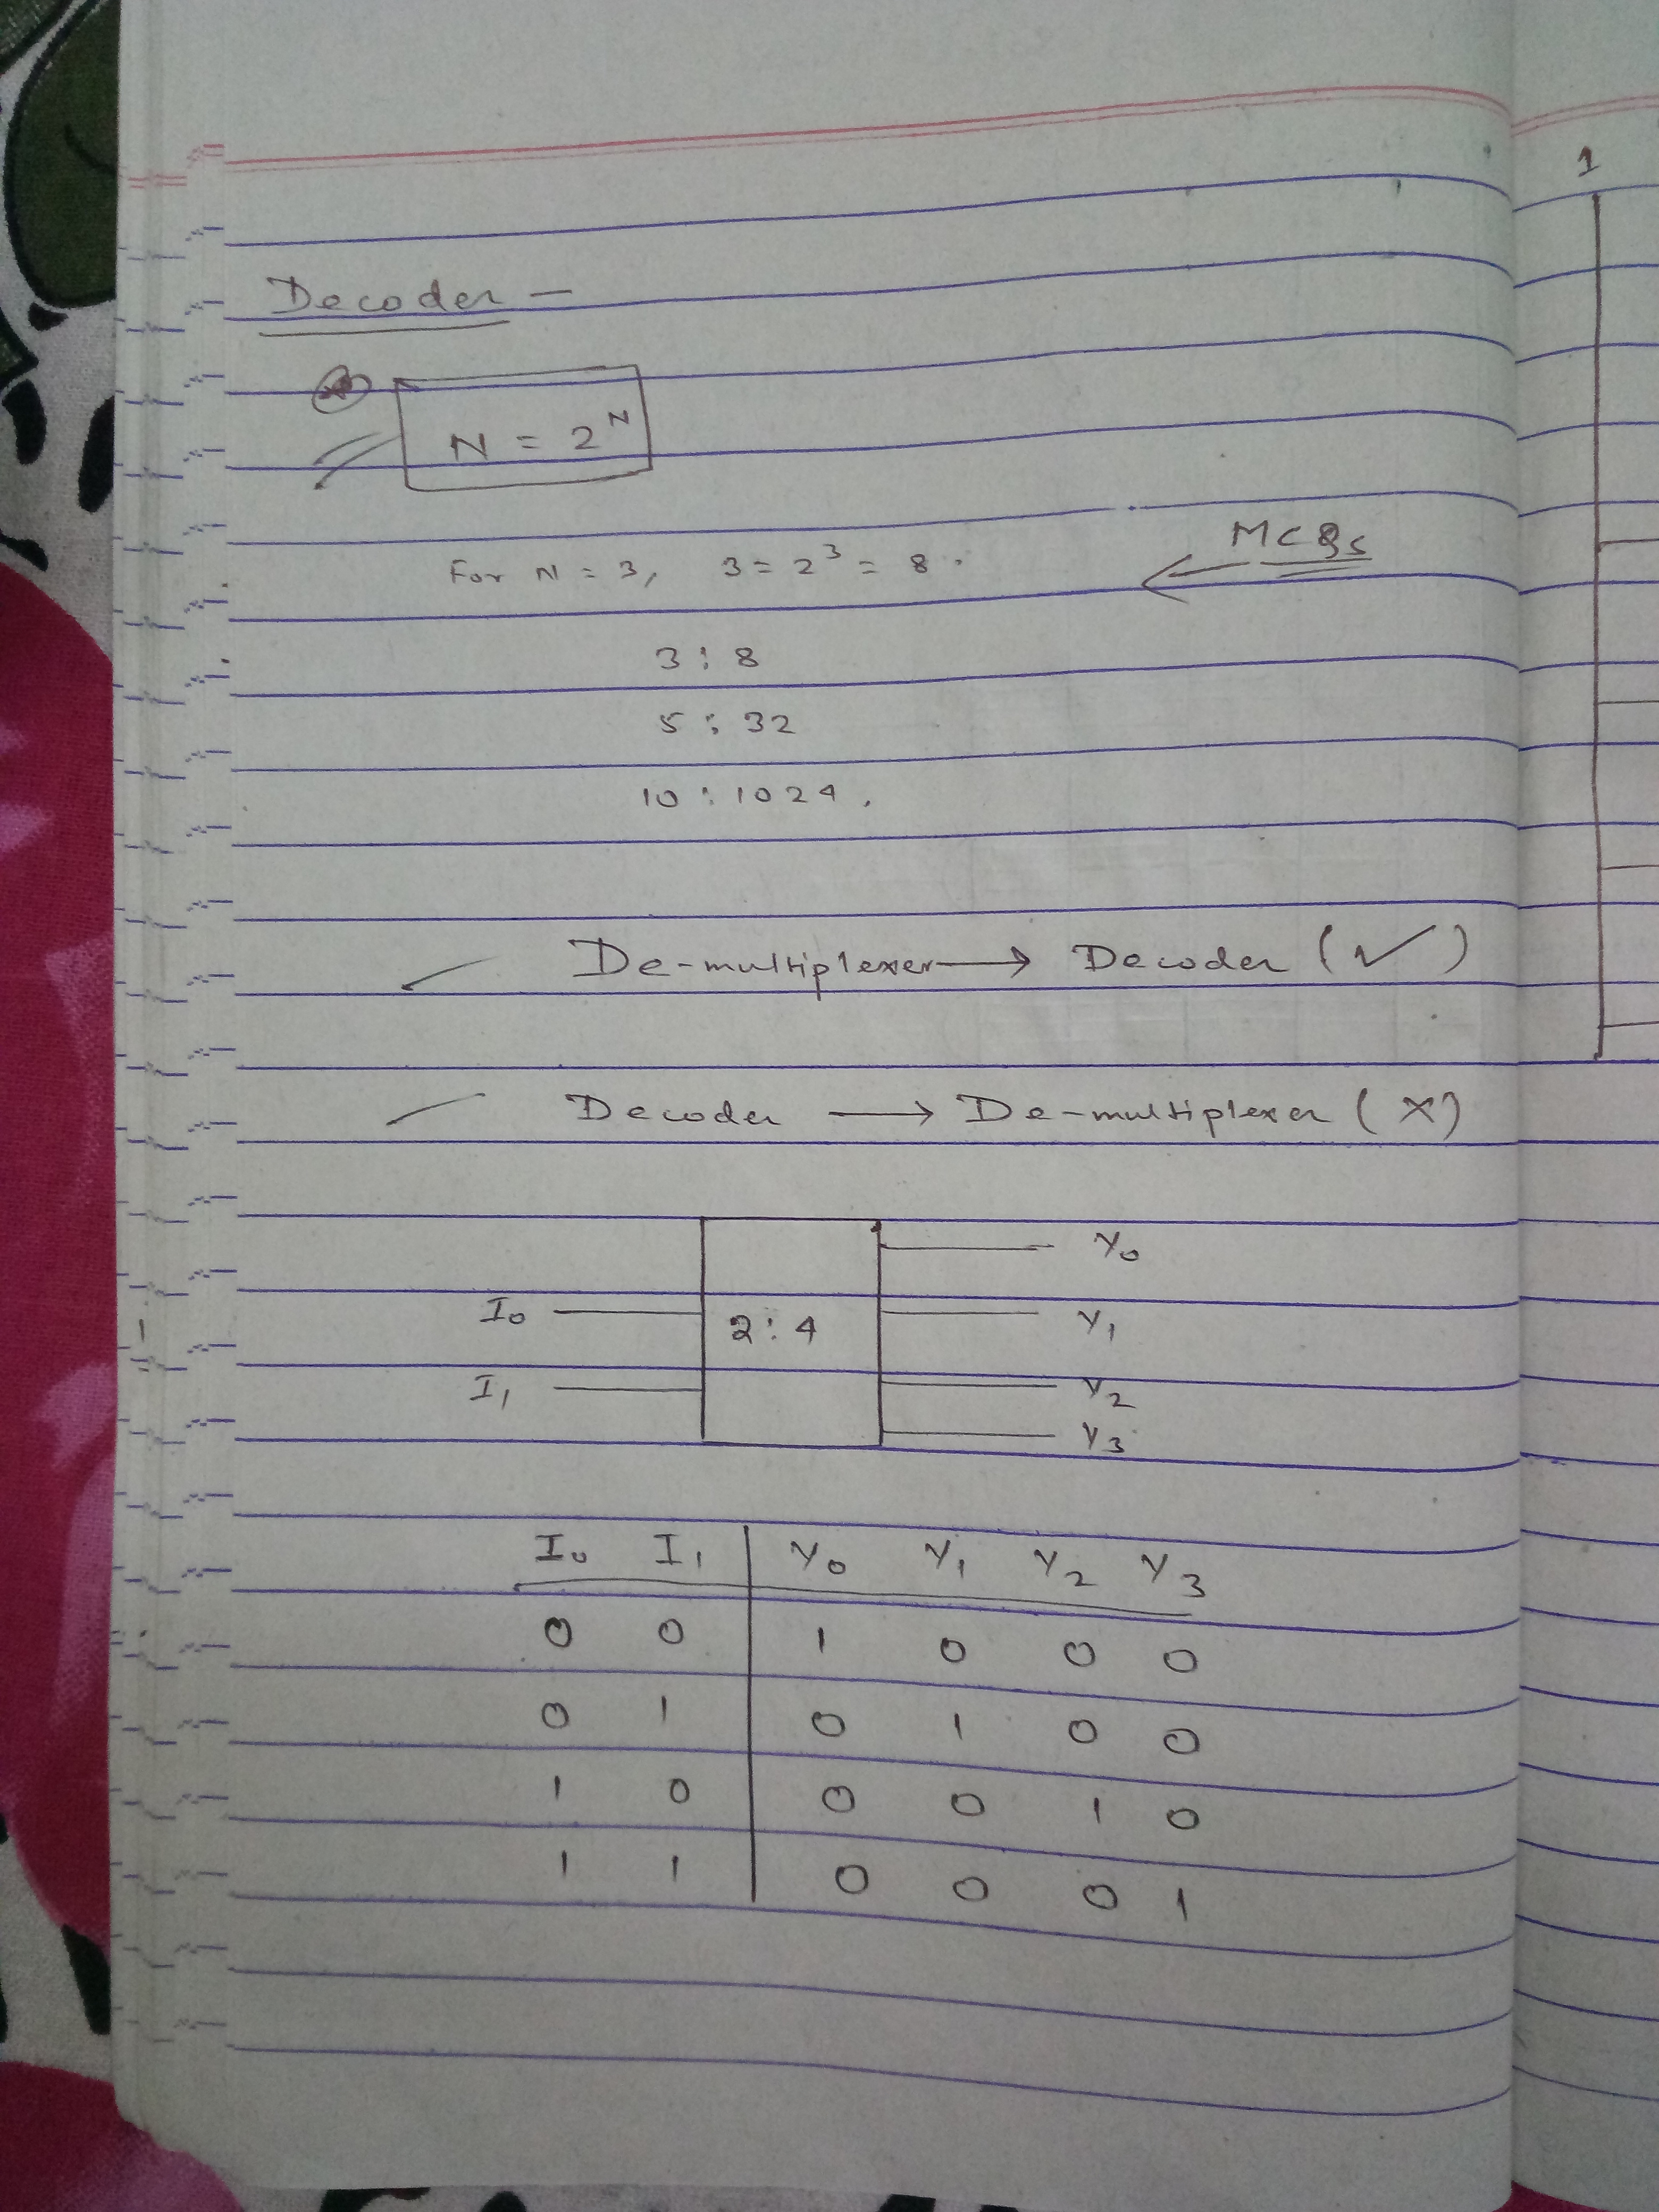 Decoder –
N = 2^N
MCQs
For N = 3, 3 = 2^3 = 8.
3 : 8
5 : 32
10 : 1024.
De-multiplexer → Decoder (✓)
Decoder → De-multiplexer (×)
Y0
I0 2:4 Y1
I1 Y2
Y3
I0 I1 Y0 Y1 Y2 Y3
0 0 1 0 0 0
0 1 0 1 0 0
1 0 0 0 1 0
1 1 0 0 0 1
1